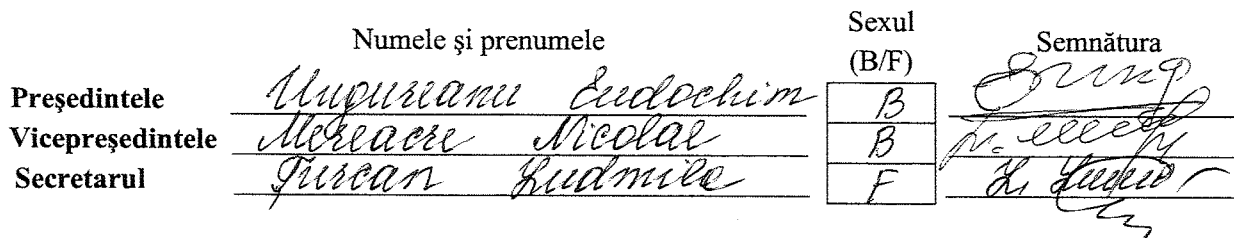 Numele şi prenumele Sexul (B/F) Semnătura
Preşedintele Ungureanu Eudochim B
Vicepreşedintele Mereacre Nicolae B
Secretarul Ţurcan Ludmila F